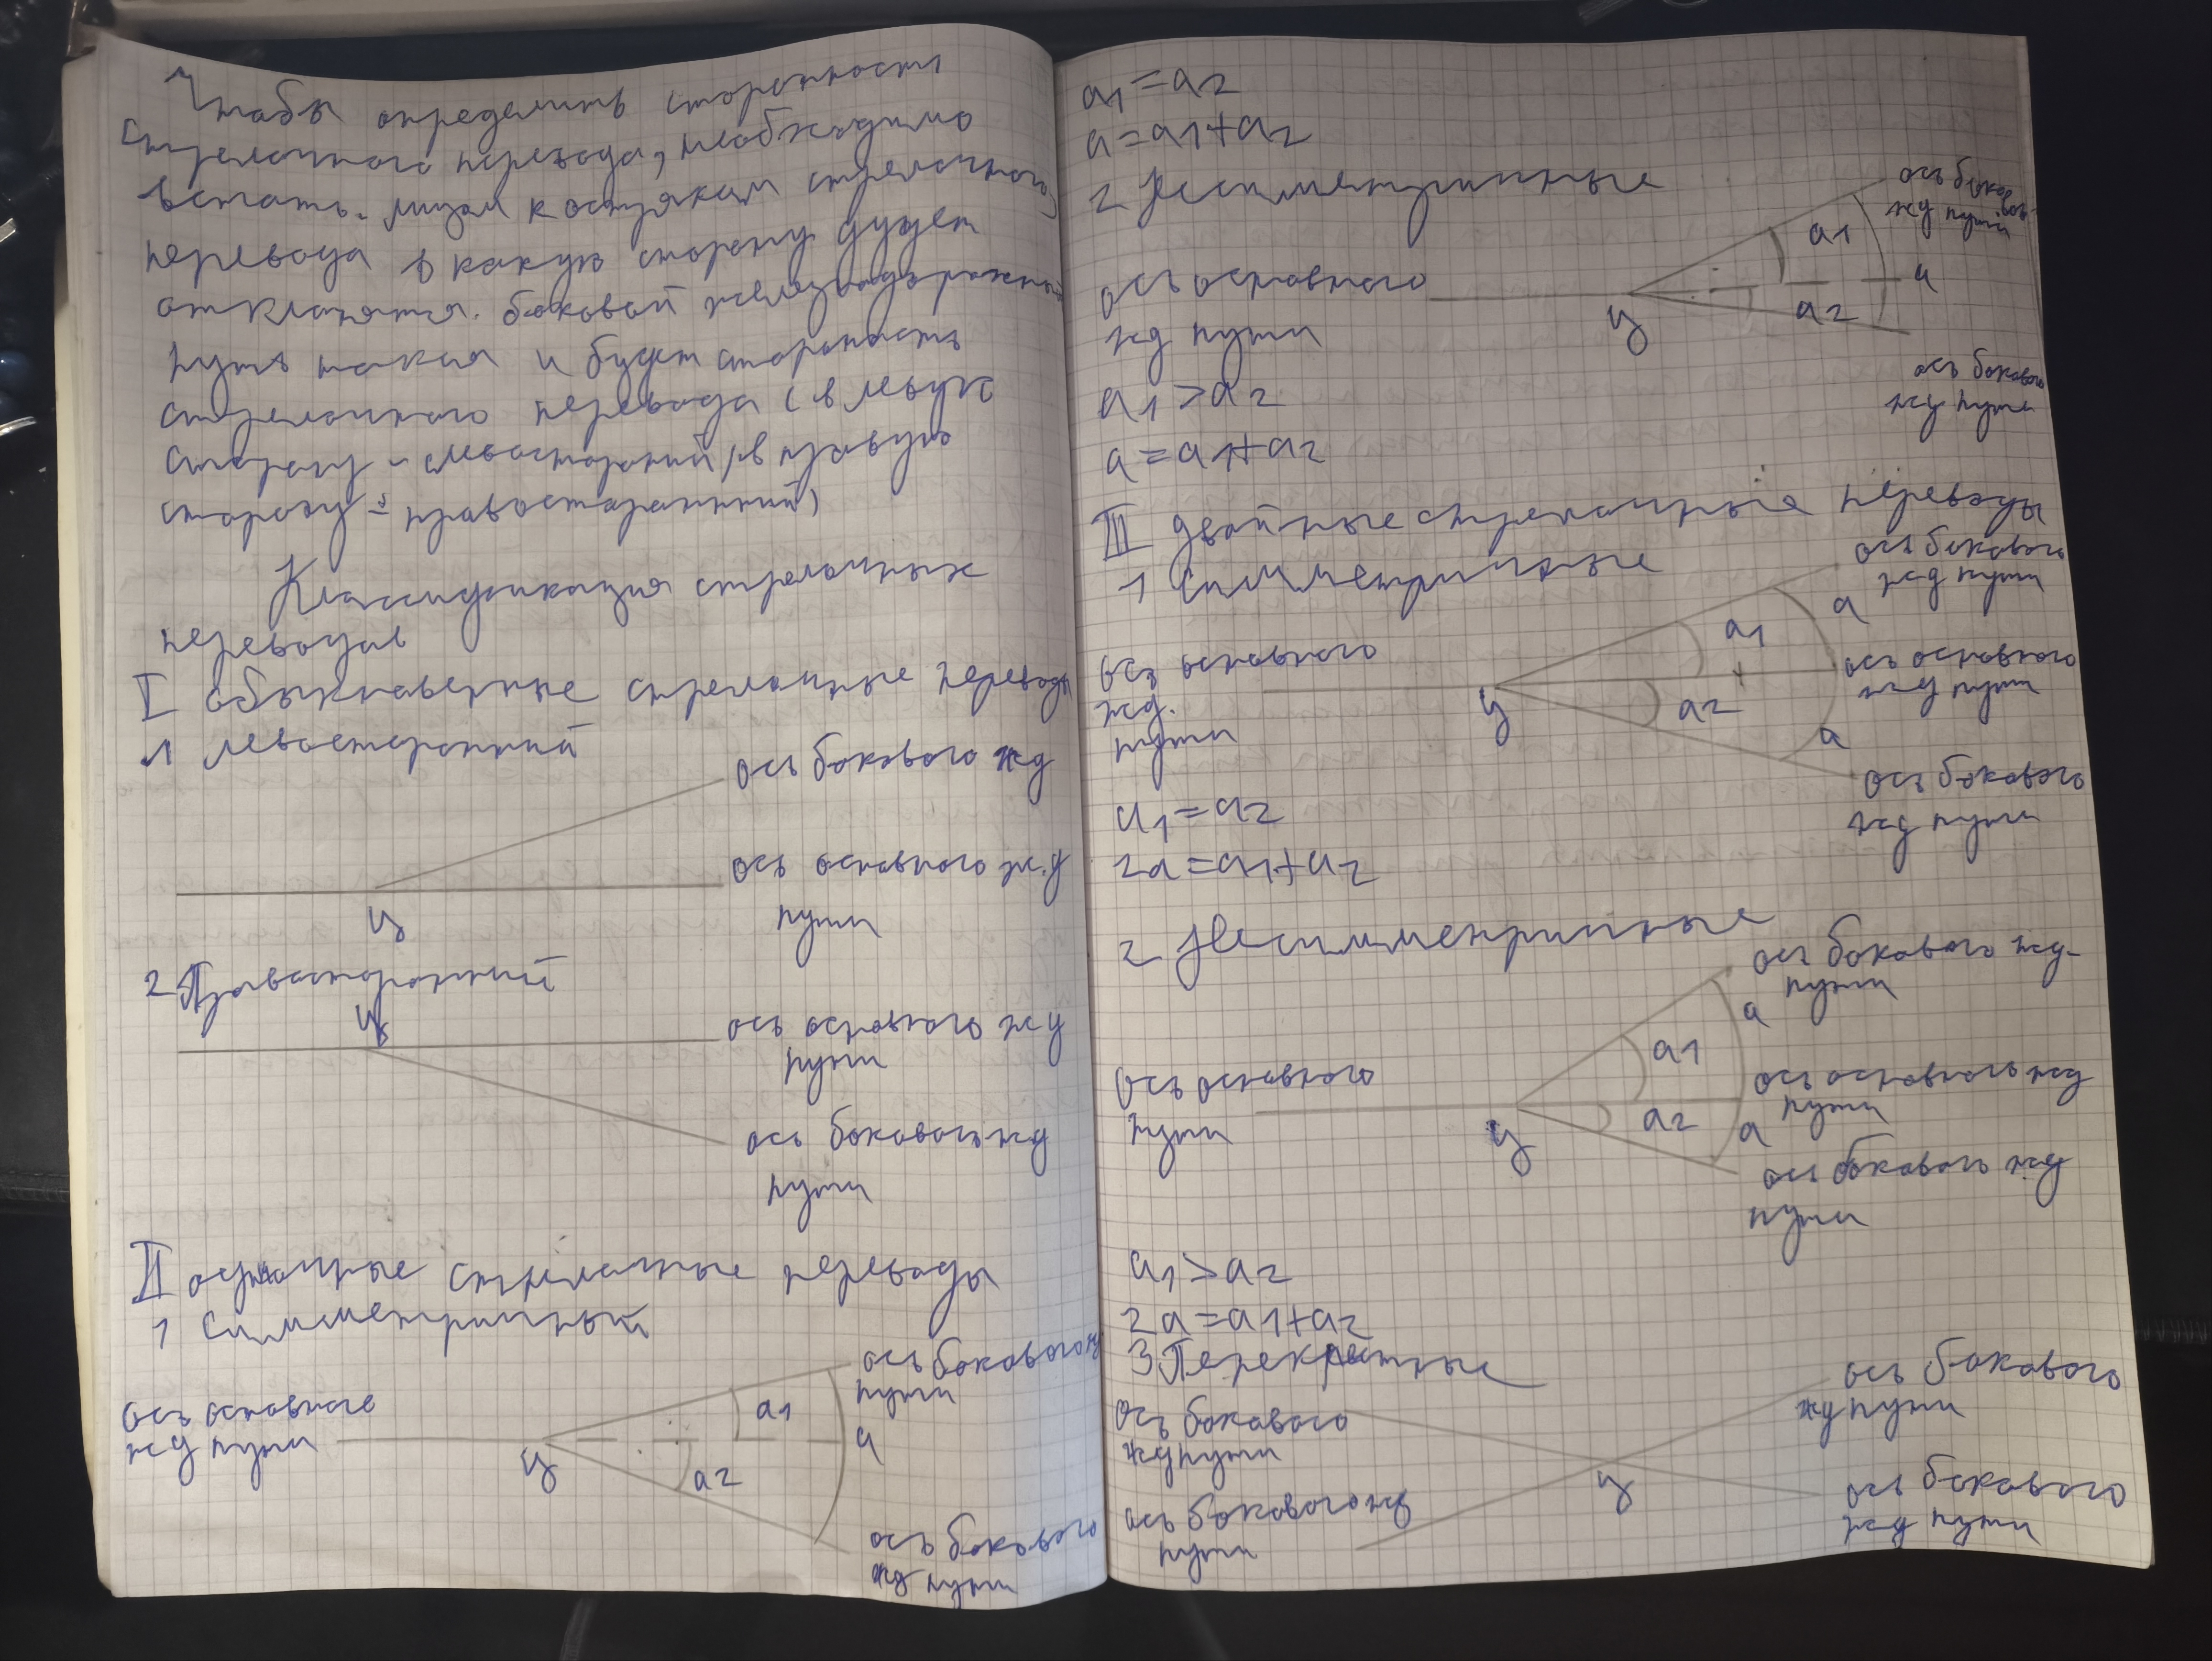 Чтобы определить сторонность
стрелочного перевода, необходимо
встать. лицом к острякам стрелочного
перевода в какую сторону будет
отклонятся. боковой железнодорожный
путь такая и будет сторонность
стрелочного перевода (в левую
сторону - левосторонний, в правую
сторону - правосторонний)
Классификация стрелочных
переводов
I обыкновенные стрелочные переводы
1 левосторонний
ось бокового жд
ось основного ж.д
пути
ц
2 Правосторонний
ц
ось основного жд
пути
ось бокового жд
пути
II одиночные стрелочные переводы
1 Симметричный
ось бокового жд
пути
ось основного
жд пути
ц
a1
a
a2
ось бокового
жд пути
a1=a2
a=a1+a2
2 Несимметричные
ось боковой
жд пути
a1
a
ось основного
жд пути
ц
a2
ось бокового
жд пути
a1>a2
a=a1+a2
III двойные стрелочные переводы
1 Симметричные
ось бокового
жд пути
a
a1
ось основного
жд.
пути
ось основного
жд пути
ц
a2
a
ось бокового
жд пути
a1=a2
2a=a1+a2
2 Несимметричные
ось бокового жд-
пути
a
a1
ось основного
пути
ось основного жд
пути
ц
a2
a
ось бокового жд
пути
a1>a2
2a=a1+a2
3 Перекрестные
ось бокового
жд пути
ось бокового
жд пути
ц
ось бокового жд
пути
ось бокового
жд пути